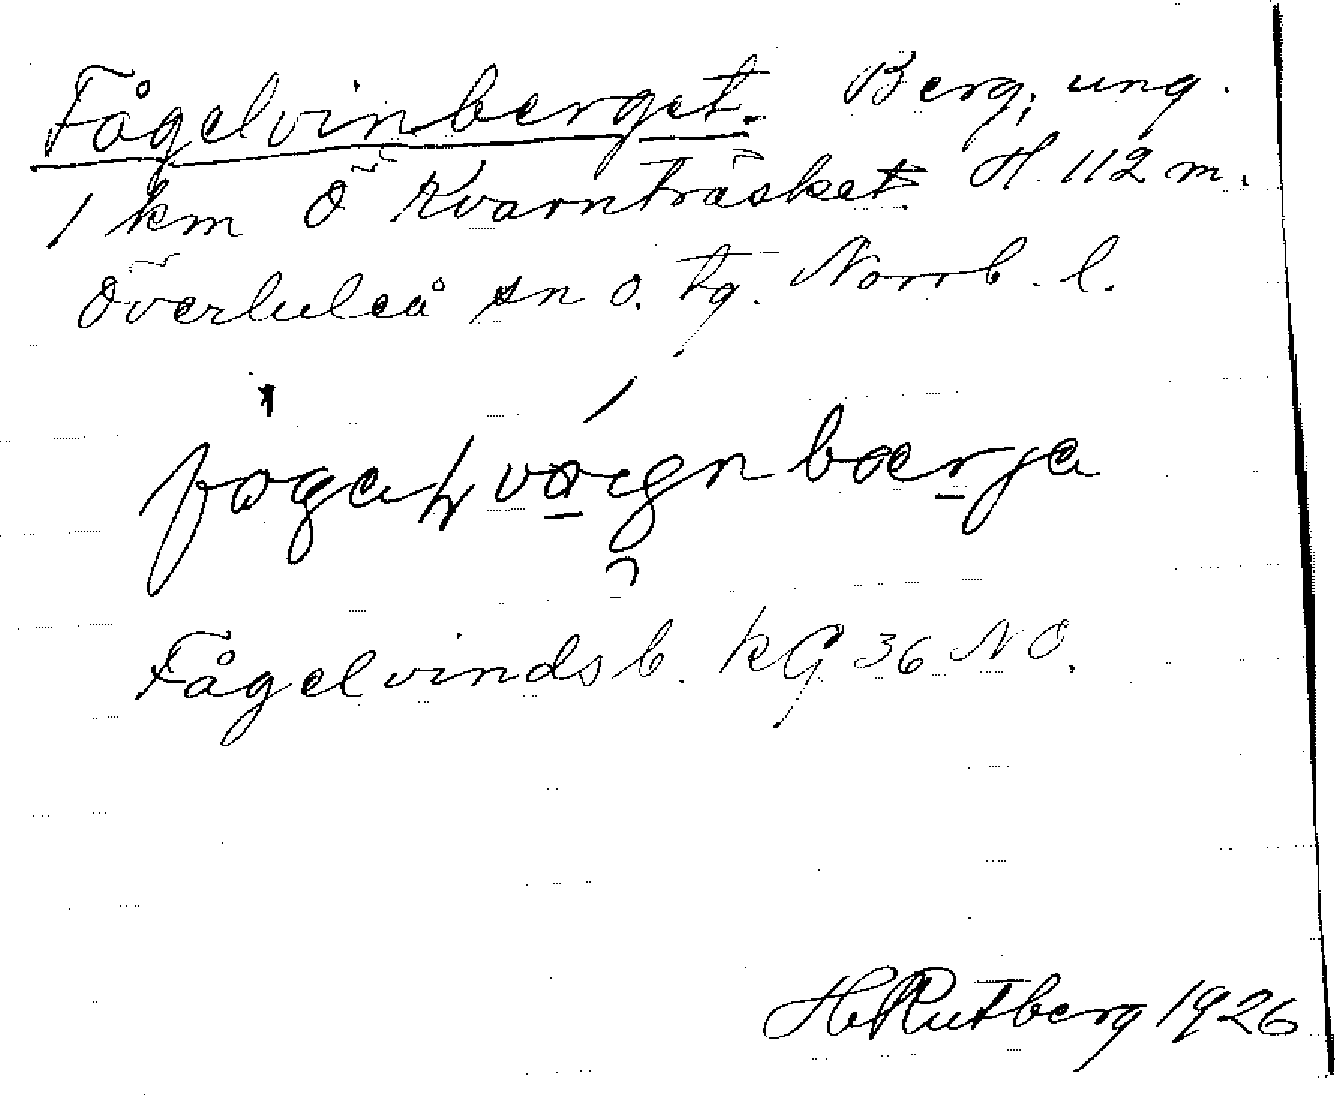 Fågelvinberget. Berg, ung.
1 km Ö Kvarnträsket. H. 112 m.
Överluleå sn o. tg. Norrb. l.
Fågelvindsb. kG 36 NO.
H. Rutberg 1926